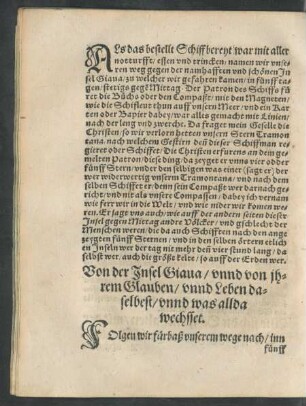 ALs das bestellt Schiff bereyt war mit aller
notturfft / essen vnd trincken / namen wir vnse-
ren weg gegen der namhafften vnd schönen In
sel Giaua / zu welcher wir gefahren kamen / in fünff ta-
gen / stetigs gegē Mittag. Der Patron des Schiffs fů
ret die Büchs oder den Compaßt / mit den Magneten /
wie die Schifleut thun auff vnsern Meer / vnd ein Kar
ten oder Bapier dabey / war alles gemacht mit Linien /
nach der leng vnd zwerche. Da fraget mein Geselle die
Christen / so wir verlorn hetten vnsern Stern Cramon
tana, nach welchen Gestirn deß dieser Schiffman re-
gierer oder Schiffet: Die Christen erfuren an dem ge-
melten Patron / diese ding / da zeyget er vnns vier oder
fünff Stern / vnder den selbigen was einer (saget er) der
wer widerwertig vnserm Cramontana / vnd nach dem
selben Schiffet er / denn sein Compaßt wer darnach ge-
richt / vnd nit als vnsere Compassen / dabey ich vernam
wie ferr wir in die Welt / vnd wie nider wir komen we-
ren. Er sagt vns auch / wie auff der andern seiten dieser
Insel gegen Mittag andre Völcker / vnd gschlecht der
Menschen weren / die da auch Schifften nach den ange
zeygten fünff Sternen / vnd in den selben örtern etlich
en Inseln wer der tag nit mehr deñ vier stund lang / da-
selbst wer, auch die größte kelte / so auff der Erden wer.
Von der Insel Giaua / vnnd von jh-
rem Glauben / vnnd Leben da-
selbest / vnnd was allda
wechsset.
FOlgen wir fürbaß vnserem wege nach / inn
fünff